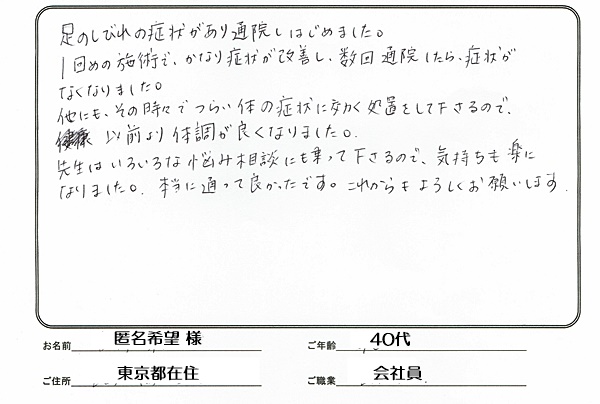 足のしびれの症状があり通院しはじめました。
1回めの施術で、かなり症状が改善し、数回通院したら、症状が
なくなりました。
他にも、その時々でつらい体の症状に効く処置をして下さるので、
以前より体調が良くなりました。
先生はいろいろな悩み相談にも乗って下さるので、気持ちも楽に
なりました。本当に通って良かったです。これからもよろしくお願いします.
お名前 匿名希望 様 ご年齢 40代
ご住所 東京都在住 ご職業 会社員